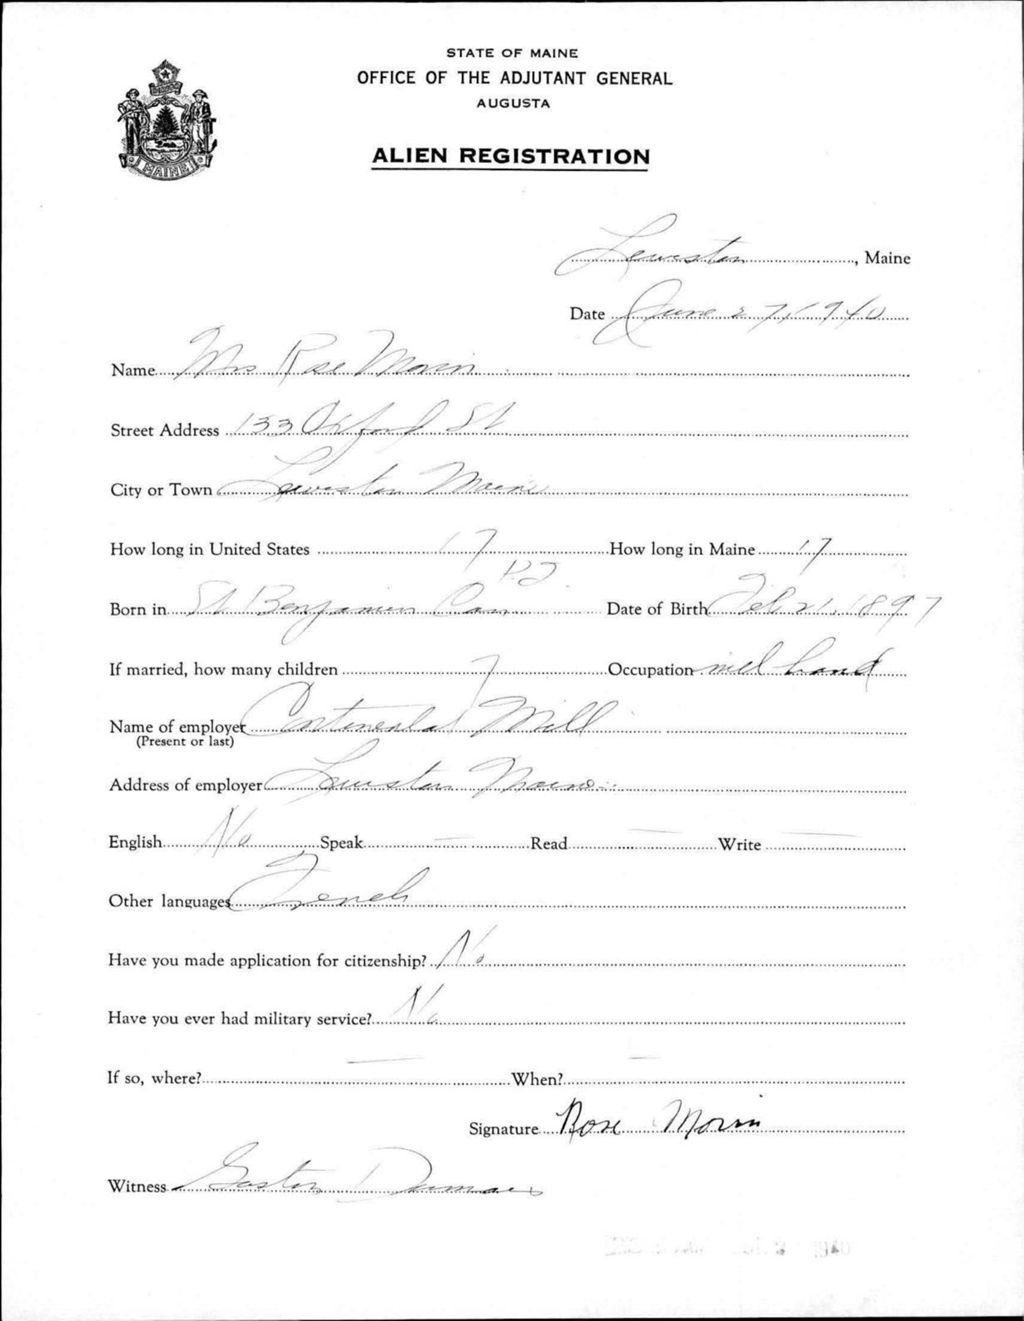 STATE OF MAINE
OFFICE OF THE ADJUTANT GENERAL
AUGUSTA
MAINE
ALIEN REGISTRATION
Lewiston, Maine
Date June 27, 1940
Name Mrs Rose Morin
Street Address 133 Oxford St
City or Town Lewiston Maine
How long in United States 17 How long in Maine 17
P2
Born in St Benjamin Can Date of Birth Feb 21, 1897
If married, how many children 7 Occupation mill hand
Name of employer Continental Mill
(Present or last)
Address of employer Lewiston Maine
English No Speak — Read — Write —
Other languages French
Have you made application for citizenship? No
Have you ever had military service? No
If so, where? — When? —
Signature Rose Morin
Witness Gaston Dumais